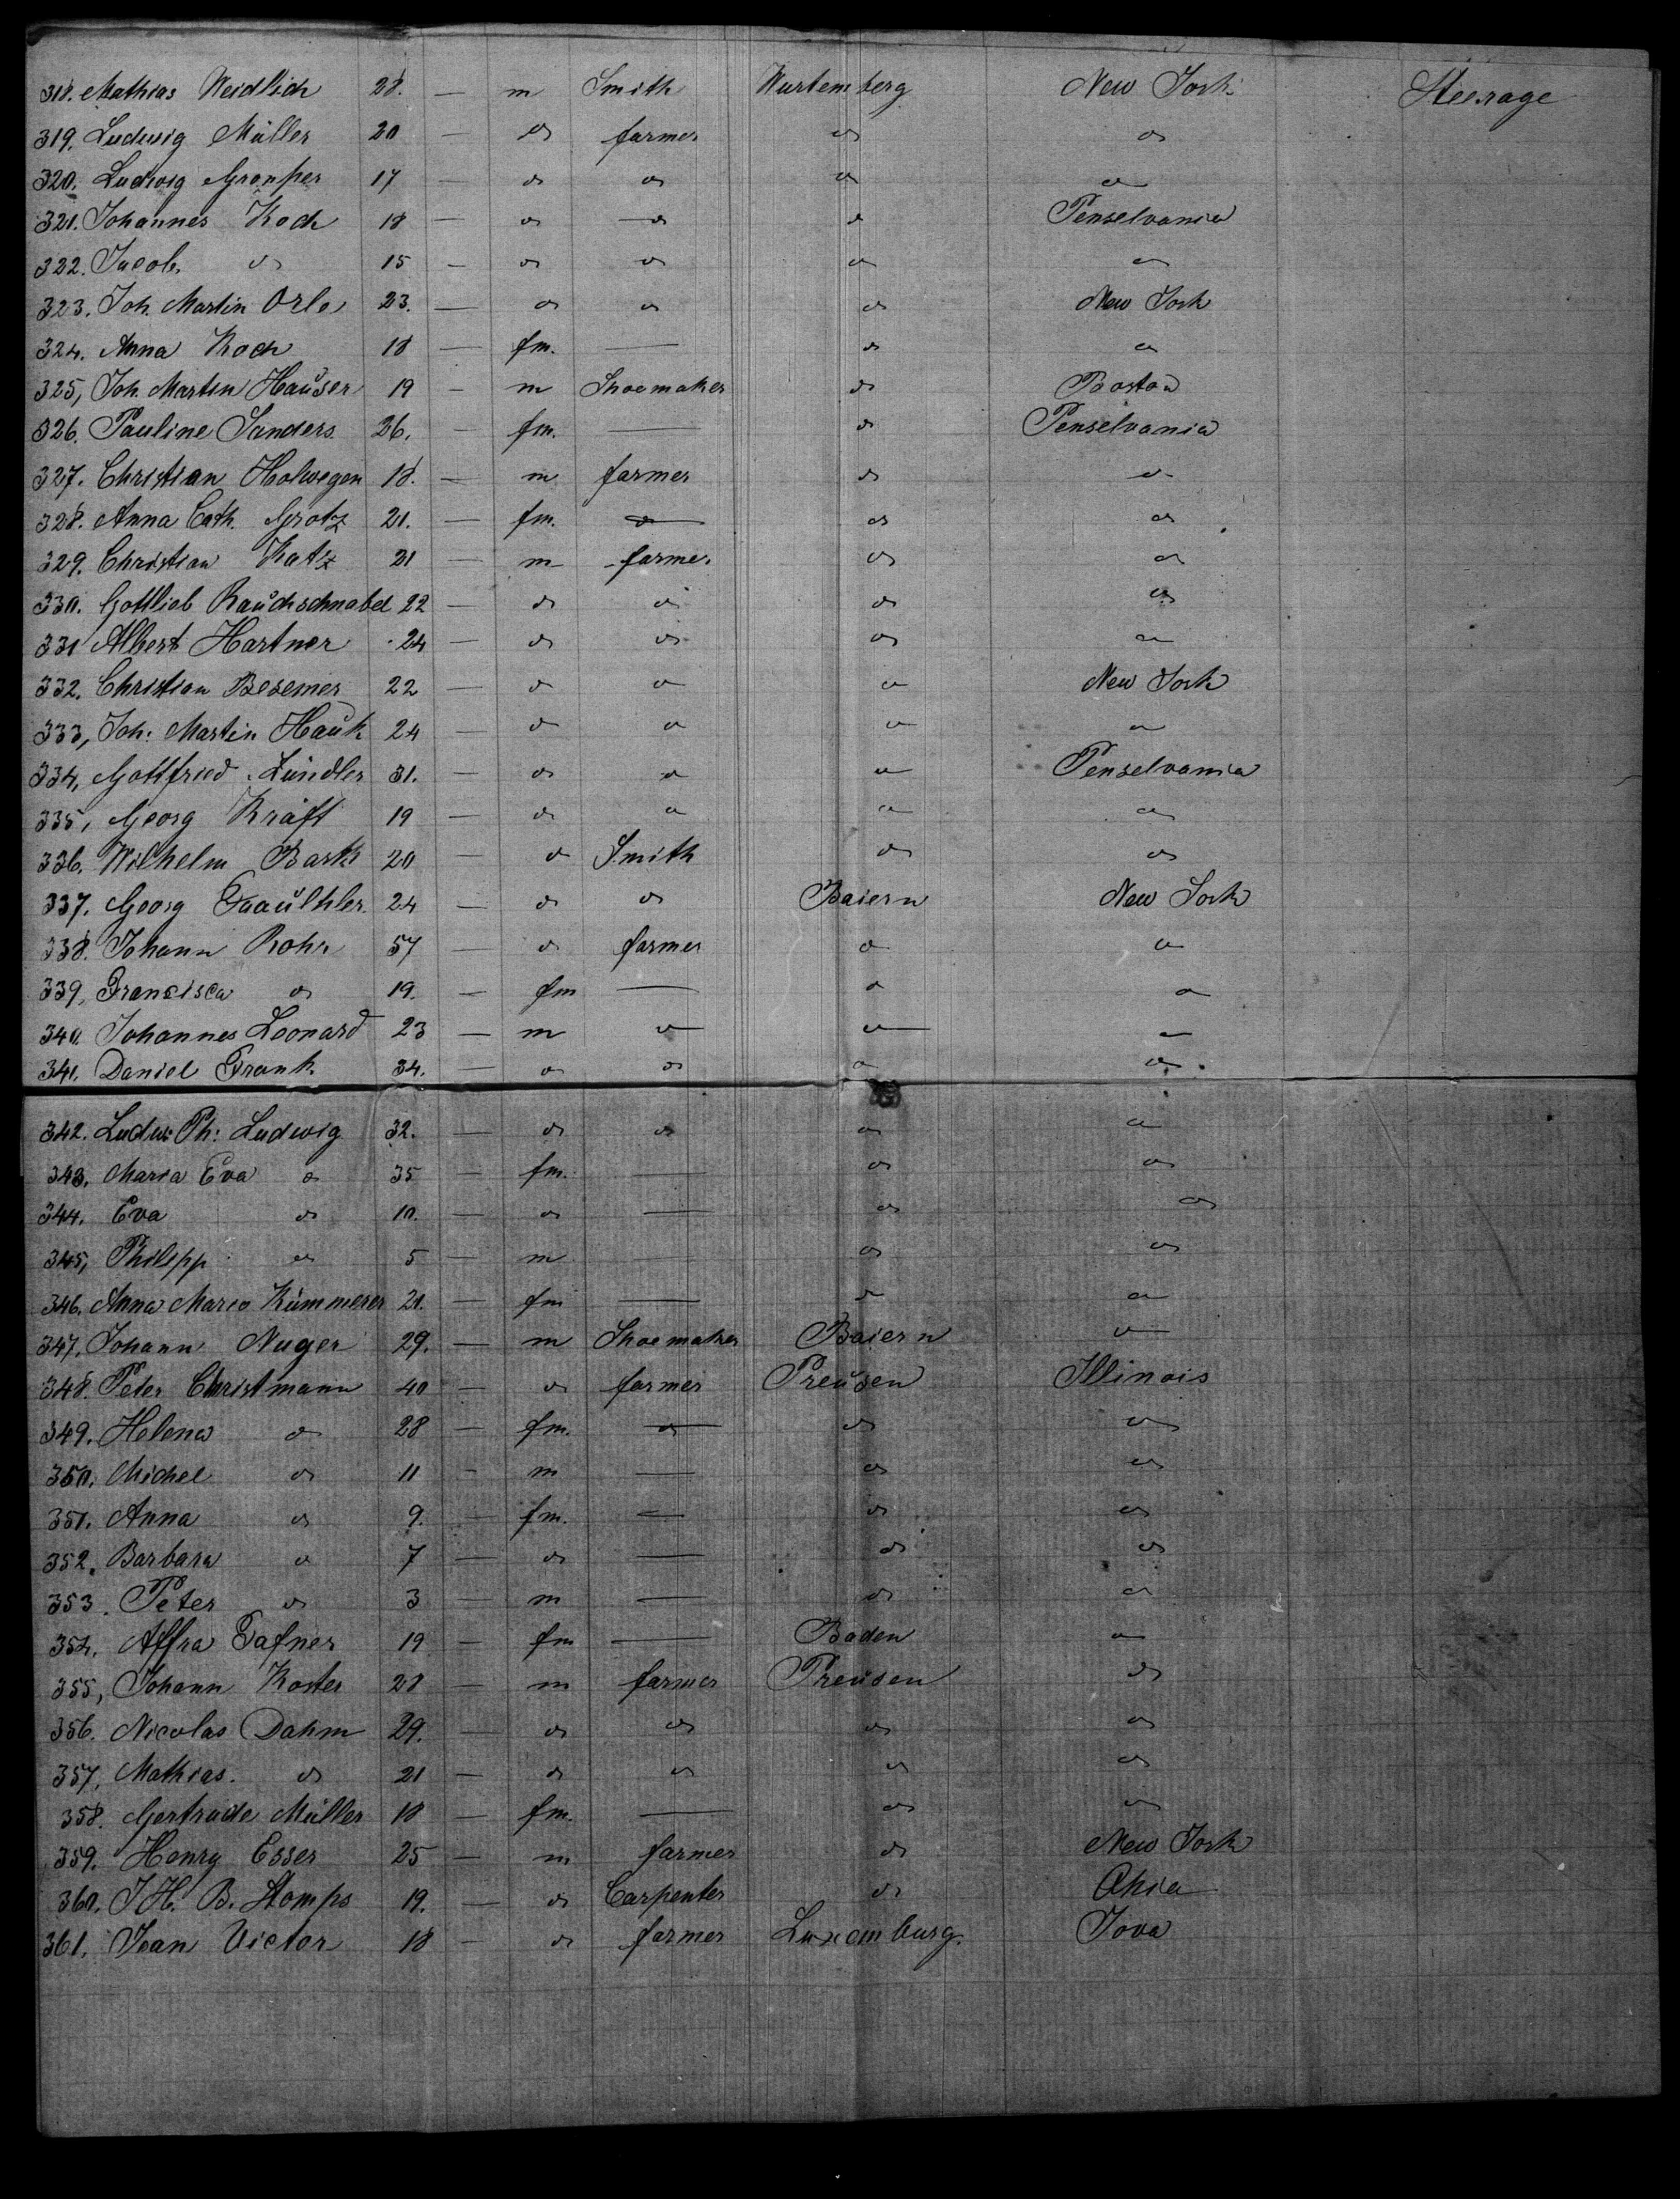 318. Mathias Weidlich 28. — m Smith Wurtemberg New York Steerage
319. Ludwig Müller 20 — do farmer do do
320. Ludwig Gromper 17 — do do do do
321. Johannes Koch 18 — do do do Penselvania
322. Jacob do 15 — do do do do
323. Joh. Martin Orle 23. — do do do New York
324. Anna Koch 18 — fm. — do do
325, Joh. Martin Hauser 19 — m Shoemaker do Boston
326. Pauline Sanders 26. — fm. — do Penselvania
327. Christian Holwegen 18. — m farmer do do
328. Anna Cath. Grotz 21. — fm. do do do
329. Christian Katz 21 — m farmer do do
330. Gottlieb Rauchschnabel 22 — do do do do
331 Albert Hartner 24 — do do do do
332. Christian Besemer 22 — do do do New York
333, Joh: Martin Hauk 24 — do do do do
334, Gottfried Lündler 31. — do do do Penselvania
335, Georg Kraft 19 — do do do do
336. Wilhelm Barth 20 — do Smith do do
337. Georg 24 — do do Baiern New York
338. Johann Rohr 57 — do farmer do do
339, Francisca do 19. — fm — do do
340. Johannes Leonard 23 — m do do do
341. Daniel Frank 34. — do do do do
342. Ludw: Ph: Ludwig 32. — do do do do
343. Maria Eva do 35 — fm. — do do
344. Eva do 10. — do — do do
345, Philipp do 5 — m — do do
346. Anna Maria Kümmerer 21. — fm — do do
347. Johann Nuger 29. — m Shoemaker Baiern do
348. Peter Christmann 40 — do farmer Preusen Illinois
349. Helena do 28 — fm. do do do
350. Michel do 11 — m — do do
351. Anna do 9. — fm. — do do
352. Barbara do 7 — do — do do
353. Peter do 3 — m — do do
354. Affra Tafner 19 — fm — Baden do
355, Johann Koster 28 — m farmer Preusen do
356. Nicolas Dahm 29. — do do do do
357, Mathias. do 21 — do do do do
358. Gertrude Müller 18 — fm. — do do
359. Henry Esser 25 — m farmer do New York
360. J. H. B. Stomps 19. — do Carpenter do Ohio
361. Jean Victor 18 — do farmer Luxemburg. Iova